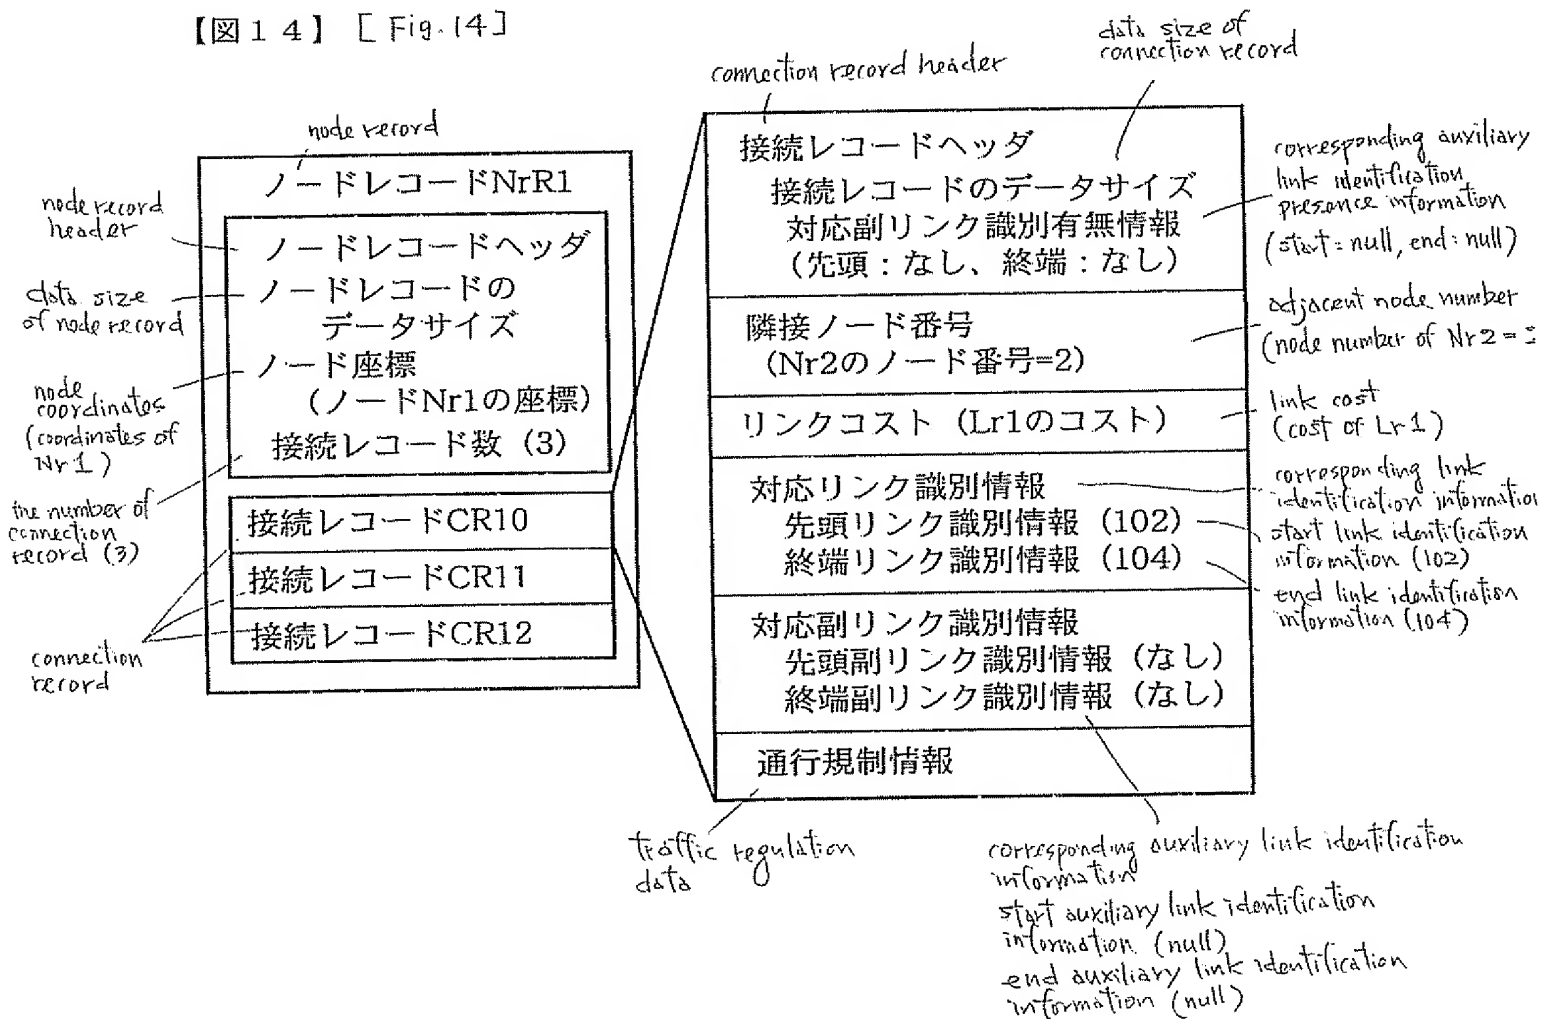 【図14】 [Fig.14]
node record
ノードレコードNrR1
node record
header
ノードレコードヘッダ
data size
of node record
ノードレコードの
データサイズ
node
coordinates
(coordinates of
Nr1)
ノード座標
(ノードNr1の座標)
接続レコード数 (3)
the number of
connection
record (3)
接続レコードCR10
接続レコードCR11
接続レコードCR12
connection
record
connection record header
data size of
connection record
接続レコードヘッダ
接続レコードのデータサイズ
対応副リンク識別有無情報
(先頭:なし、終端:なし)
corresponding auxiliary
link identification
presence information
(start=null, end:null)
隣接ノード番号
(Nr2のノード番号=2)
adjacent node number
(node number of Nr2=
リンクコスト (Lr1のコスト)
link cost
(cost of Lr1)
対応リンク識別情報
先頭リンク識別情報 (102)
終端リンク識別情報 (104)
corresponding link
identification information
start link identification
information (102)
end link identification
information (104)
対応副リンク識別情報
先頭副リンク識別情報 (なし)
終端副リンク識別情報 (なし)
通行規制情報
traffic regulation
data
corresponding auxiliary link identification
information
start auxiliary link identification
information (null)
end auxiliary link identification
information (null)